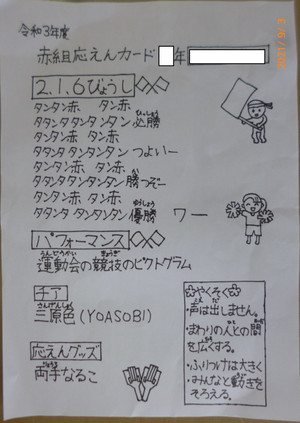 令和3年度
赤組応えんカード 年
2021/9/3
2.1.6びょうし
タンタン赤 タン赤
タタンタタンタンタン必勝
タンタン赤 タン赤
タタンタタンタンタンつよいー
タンタン赤 タン赤
タタンタタンタンタン勝つぞー
タンタン赤 タン赤
タタンタタンタンタン優勝 ワー
パフォーマンス
運動会の競技のピクトグラム
チア
三原色(YOASOBI)
応えんグッズ
両手なるこ
☆やくそく☆
・声は出しません。
・まわりの人との間
を広くする。
・ふりつけは大きく
・みんなと動きを
そろえる。